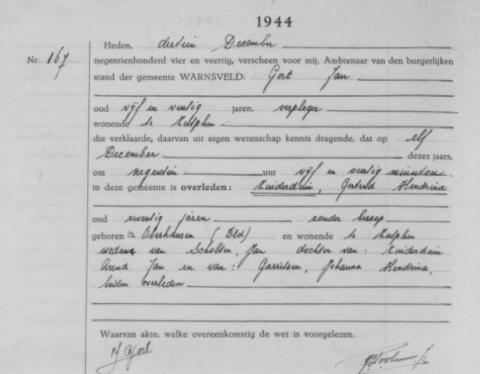 1944
Nr. 167
Heden, dertien December
negentienhonderd vier en veertig, verscheen voor mij, Ambtenaar van den burgerlijken
stand der gemeente WARNSVELD: Gort Jan
oud vijf en veertig jaren, verpleger
wonende te Zutphen
die verklaarde, daarvan uit eigen wetenschap kennis dragende, dat op elf
December dezes jaars,
om negentien uur vijf en veertig minuten
in deze gemeente is overleden: Zuiderduin, Hendrina
oud zeventig jaren zonder beroep
geboren te Oberhausen (Dld) en wonende te Zutphen
weduwe van Scholten, Jan dochter van: Zuiderduin
Arend Jan en van: Garritsen, Johanna Hendrina,
beiden overleden
Waarvan akte, welke overeenkomstig de wet is voorgelezen.
J Gort